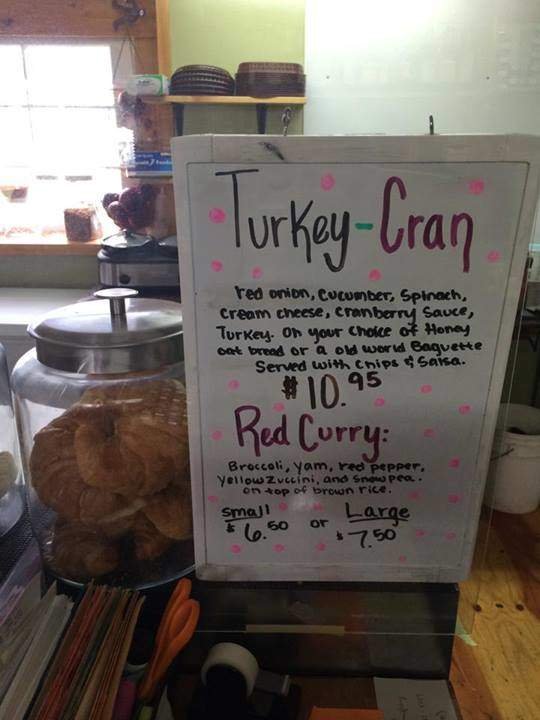 Turkey-Cran
red onion, cucumber, spinach,
cream cheese, cranberry sauce,
Turkey. on your choice of Honey
oat bread or a old world Baguette
Served with chips & Salsa.
$10.95
Red Curry:
Broccoli, yam, red pepper,
yellow zuccini, and snow pea.
on top of brown rice.
small or Large
$6.50 $7.50